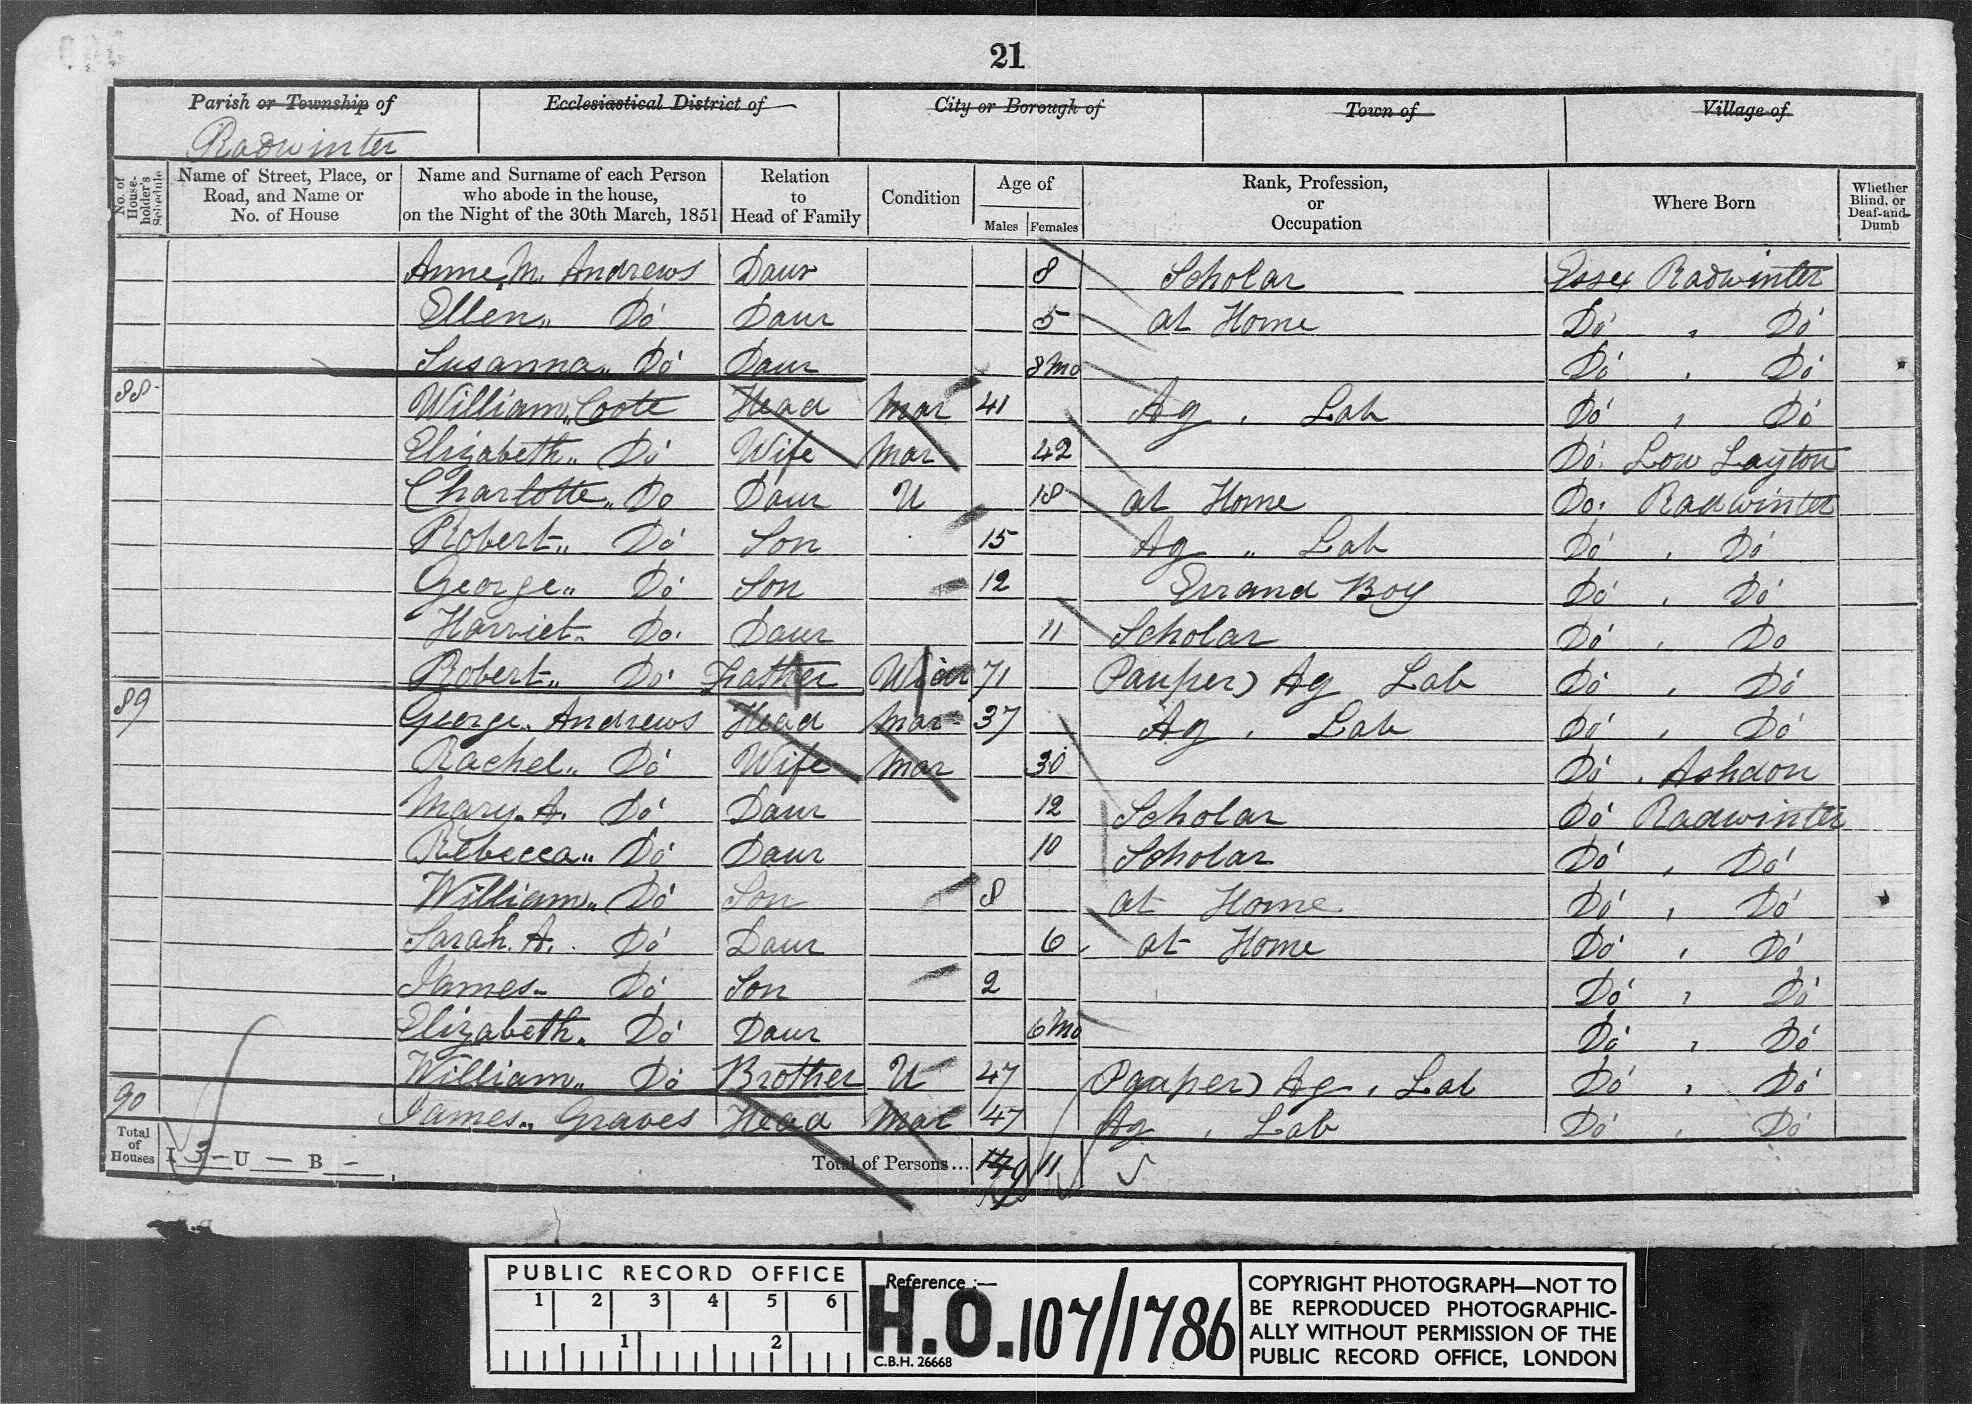 21
Parish or Township of Ecclesiastical District of City or Borough of Town of Village of
Radwinter
No. of House-holder's Schedule Name of Street, Place, or Road, and Name or No. of House Name and Surname of each Person who abode in the house, on the Night of the 30th March, 1851 Relation to Head of Family Condition Age of Males Females Rank, Profession, or Occupation Where Born Whether Blind, or Deaf-and-Dumb
Anne M. Andrews Daur 8 Scholar Essex Radwinter
Ellen " Do 5 Daur at Home Do " Do
Susanna " Do Daur 8 Mo Do " Do
88 William " Coote Head Mar 41 Ag " Lab Do " Do
Elizabeth " Do Wife Mar 42 Do. Low Layton
Charlotte " Do Daur U 18 at Home Do. Radwinter
Robert " Do Son 15 Ag " Lab Do " Do
George " Do Son 12 Errand Boy Do " Do
Harriet " Do. Daur 11 Scholar Do " Do
Robert " Do Father Wider 71 Pauper) Ag Lab Do " Do
89 George . Andrews Head Mar 37 Ag . Lab Do " Do
Rachel " Do Wife Mar 30 Do . Ashdon
Mary . A. Do Daur 12 Scholar Do Radwinter
Rebecca " Do Daur 10 Scholar Do " Do
William " Do Son 8 at Home Do " Do
Sarah . A. Do Daur 6 at Home Do " Do
James " Do Son 2 Do " Do
Elizabeth . Do Daur 6 Mo Do " Do
William " Do Brother U 47 Pauper) Ag . Lab Do " Do
90 James " Graves Head Mar 47 Ag . Lab Do " Do
Total of Houses I 3 - U - B - Total of Persons... 9 11
PUBLIC RECORD OFFICE
1 2 3 4 5 6
1 2
Reference :-
H.O. 107/1786
C.B.H. 26668
COPYRIGHT PHOTOGRAPH—NOT TO
BE REPRODUCED PHOTOGRAPHIC-
ALLY WITHOUT PERMISSION OF THE
PUBLIC RECORD OFFICE, LONDON